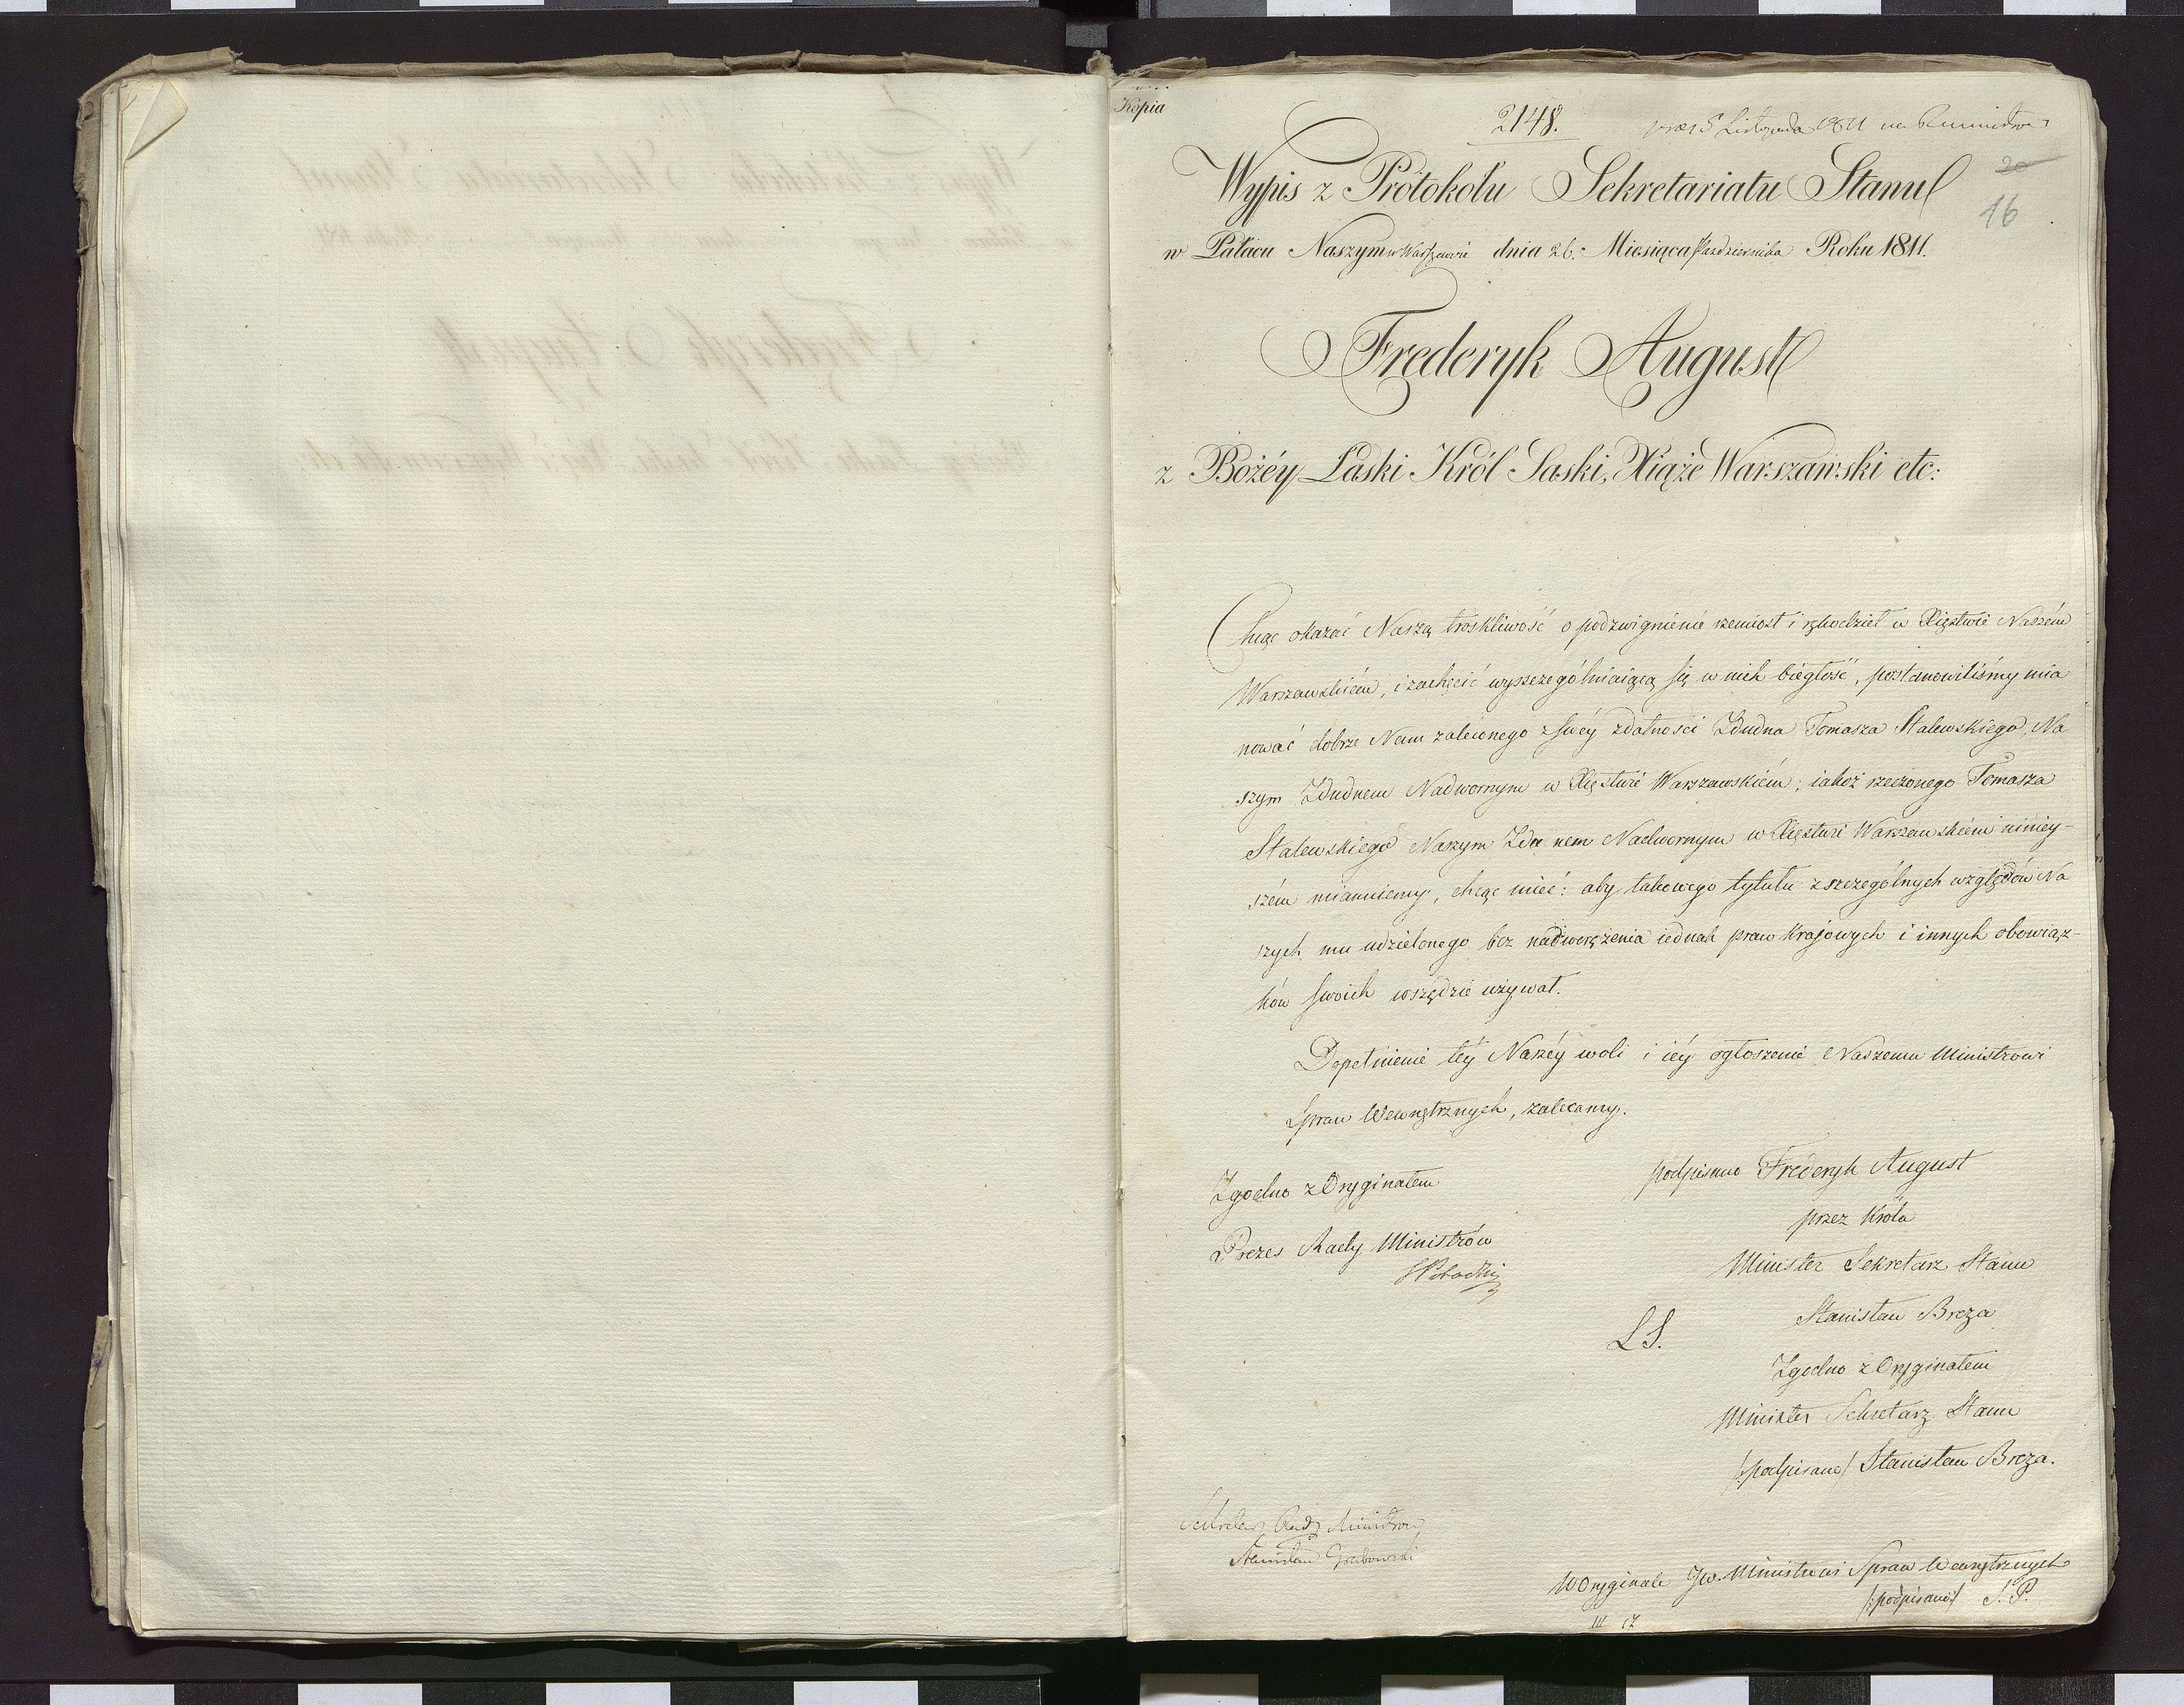 Kopia
2148.
5 Listopada 1811
20
16
Wypis z Protokołu Sekretariatu Stanu
w Pałacu Naszym w Warszawie dnia 26. Miesiąca Października Roku 1811.
Frederyk August
z Bożéy Łaski Król Saski, Xiąże Warszawski etc:
Chcąc okazać Naszą troskliwość o podzwignienié rzemiosł i rękodzieł w Xięstwie Naszém
Warszawskiém, i zachęcić wyszczególniaiącą się w nich biegłość, postanowiliśmy mia
nować dobrze Nam zaleconego z swéy zdatności Zduna Tomasza Stalewskiego, Na
szym Zdudnem Nadwornym w Xięstwie Warszawskiém; iakoż rzeczonego Tomasza
Stalewskiego Naszym Zdunem Nadwornym w Xięstwie Warszawskiém niniey-
szém mianuiemy, chcąc mieć: aby takowego tytułu z szczególnych względów Na
szych mu udzielonego bez nadwerężenia iednak praw krajowych i innych obowiąz-
ków swoich wszędzie używał.
Dopełnienie téy Naszéy woli i iéy ogłoszenie Naszemu Ministrowi
Spraw Wewnętrznych, zalecamy.
Zgodno z Oryginałem
Prezes Rady Ministrów
podpisano Frederyk August
przez Króla
Minister Sekretarz Stanu
Stanisław Breza
L S.
Zgodno z Oryginałem
Minister Sekretarz Stanu
/:podpisano/ Stanisław Breza.
Sekretarz Rady Ministrów
Stanisław Grabowski
W Oryginale Jw. Ministrowi Spraw Wewnętrznych
/:podpisano:/ S. P.
III 17